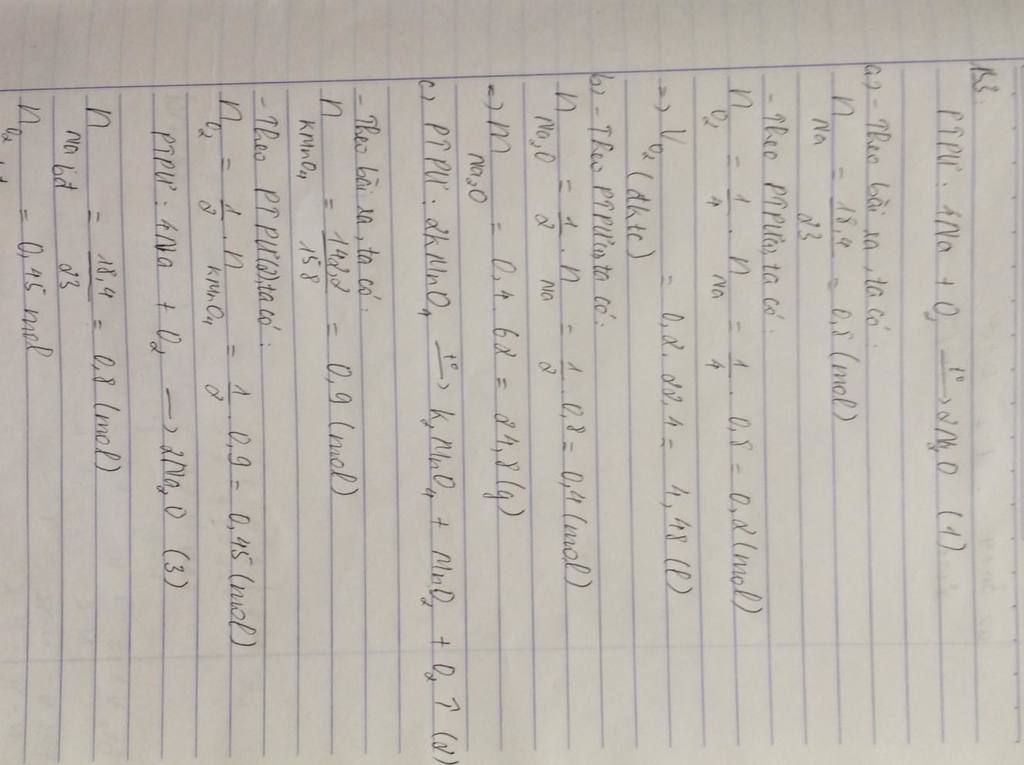 B3.
PTPƯ: 4Na + O2 —t°→ 2Na2O (1)
a) - Theo bài ra, ta có:
nNa = 18,4/23 = 0,8 (mol)
- Theo PTPƯ(1), ta có:
nO2 = 1/4 . nNa = 1/4 . 0,8 = 0,2 (mol)
=> VO2 (đktc) = 0,2. 22,4 = 4,48 (l)
b) - Theo PTPƯ(1), ta có:
nNa2O = 1/2 . nNa = 1/2 . 0,8 = 0,4 (mol)
=> mNa2O = 0,4. 62 = 24,8 (g)
c) PTPƯ: 2KMnO4 —t°→ K2MnO4 + MnO2 + O2 ↑ (2)
- Theo bài ra, ta có:
nKMnO4 = 142,2/158 = 0,9 (mol)
- Theo PTPƯ(2), ta có:
nO2 = 1/2 . nKMnO4 = 1/2 . 0,9 = 0,45 (mol)
PTPƯ: 4Na + O2 —> 2Na2O (3)
nNa bđ = 18,4/23 = 0,8 (mol)
nO2 = 0,45 mol